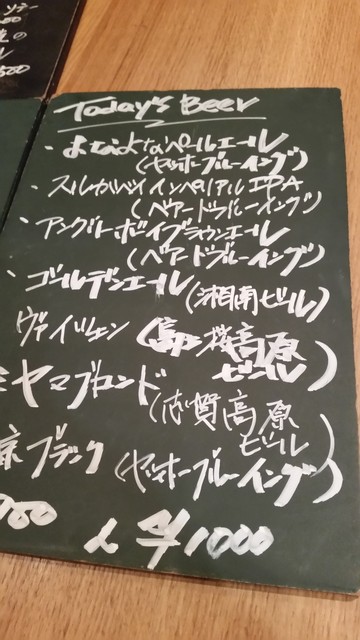 Today's Beer
・よなよなペールエール
(ヤッホーブルーイング)
・スルガベイインペリアルIPA
(ベアードブルーイング)
・アングリーボーイブラウンエール
(ベアードブルーイング)
・ゴールデンエール(湘南ビール)
ヴァイツェン(富士桜高原
ビール)
ヤマブロンド
(志賀高原
ビール)
京ブラック(ヤッホーブルーイング)
900 L ¥1000
500